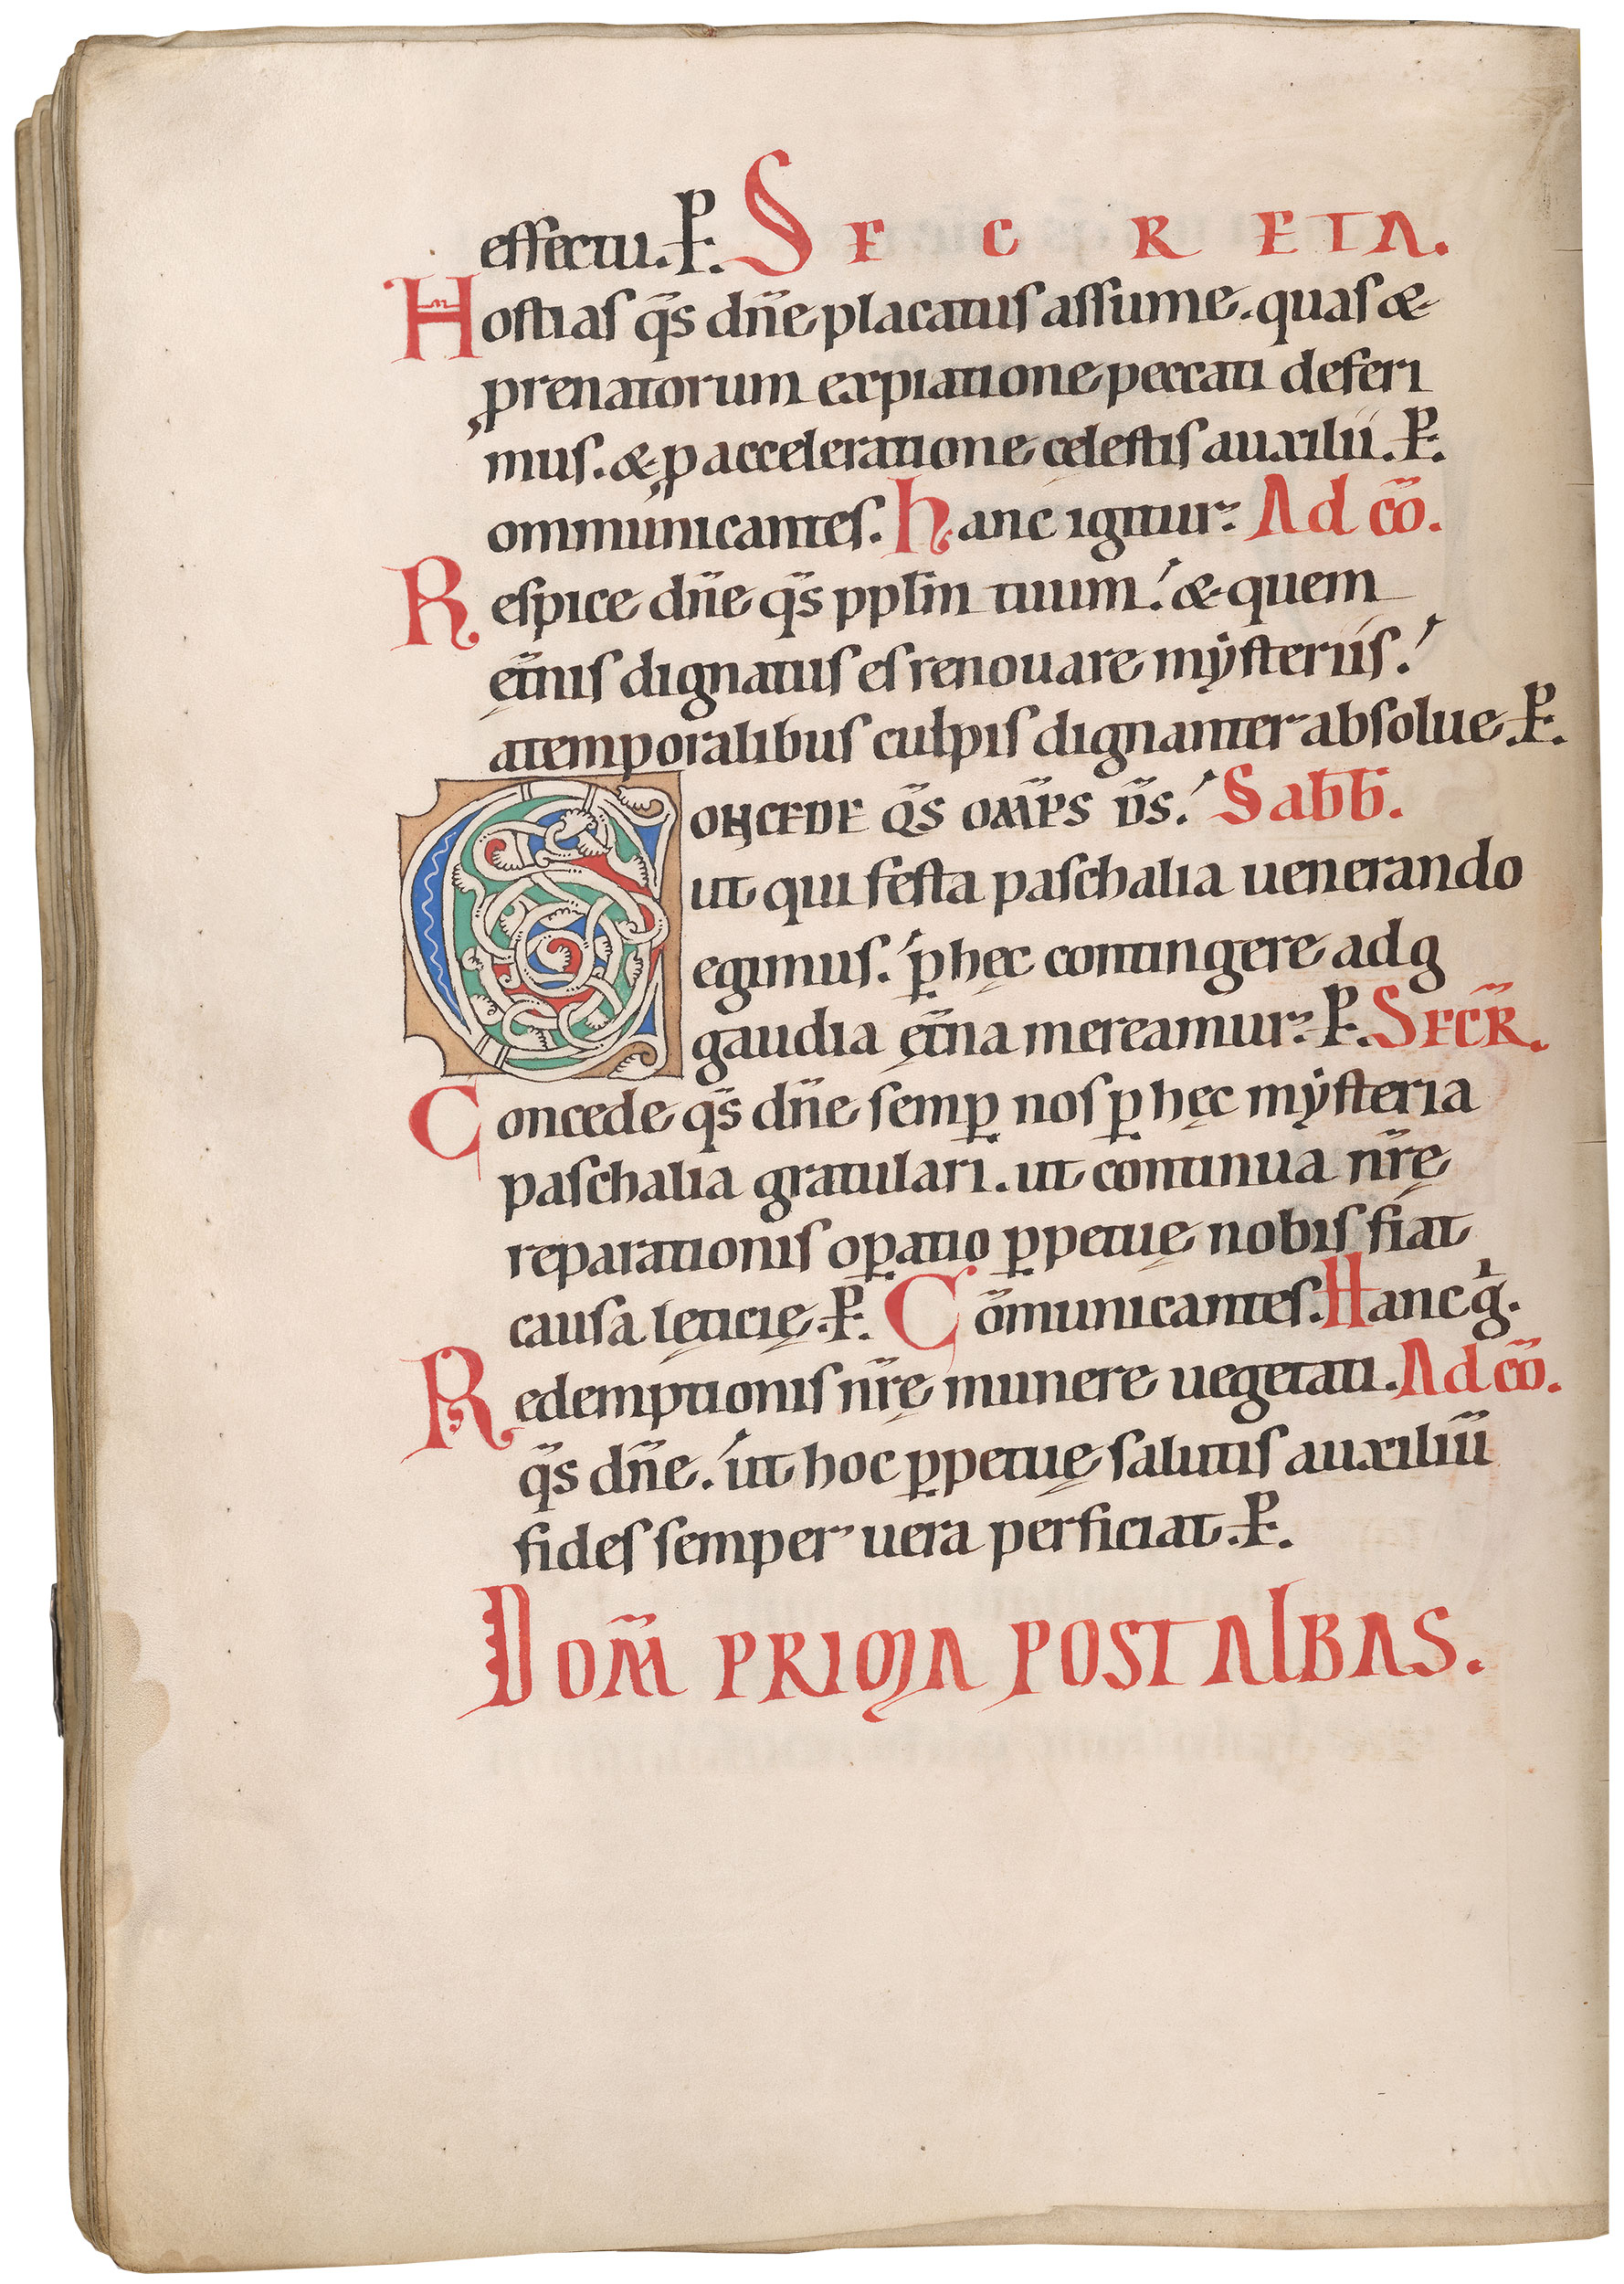 effectu. P. SECRETA.
Hostias q̄s dn̄e placatus assume. quas &
ꝓrenatorum expiatione peccati deferi
mus. & ꝓ acceleratione cęlestis auxilii. P.
ommunicantes. hanc igitur: Ad cō.
Respice dn̄e q̄s ppl̄m tuum. & quem
ęt̄nis dignatus es renouare mẏsteriis.
atemporalibus culpis dignanter absolue. P.
CONCEDE Q̄S OM̄PS D̄S. Sabb̄.
ut qui festa paschalia uenerando
egimus. ꝑ hęc contingere ad g
gaudia ęt̄na mereamur: P. SECR̄.
Concede q̄s dn̄e semꝑ nos ꝑ hęc mẏsteria
paschalia gratulari. ut continua nr̄ę
reparationis oꝑatio ꝑpetuę nobis fiat
causa lęticię. P. Cōmunicantes. Hanc gͥ.
Redemptionis nr̄ę munere uegetati. Ad cō.
q̄s dn̄e. ut hoc ꝑpetuę salutis auxiliū
fides semper uera perficiat. P.
DOM̄ PRIMA POST ALBAS.